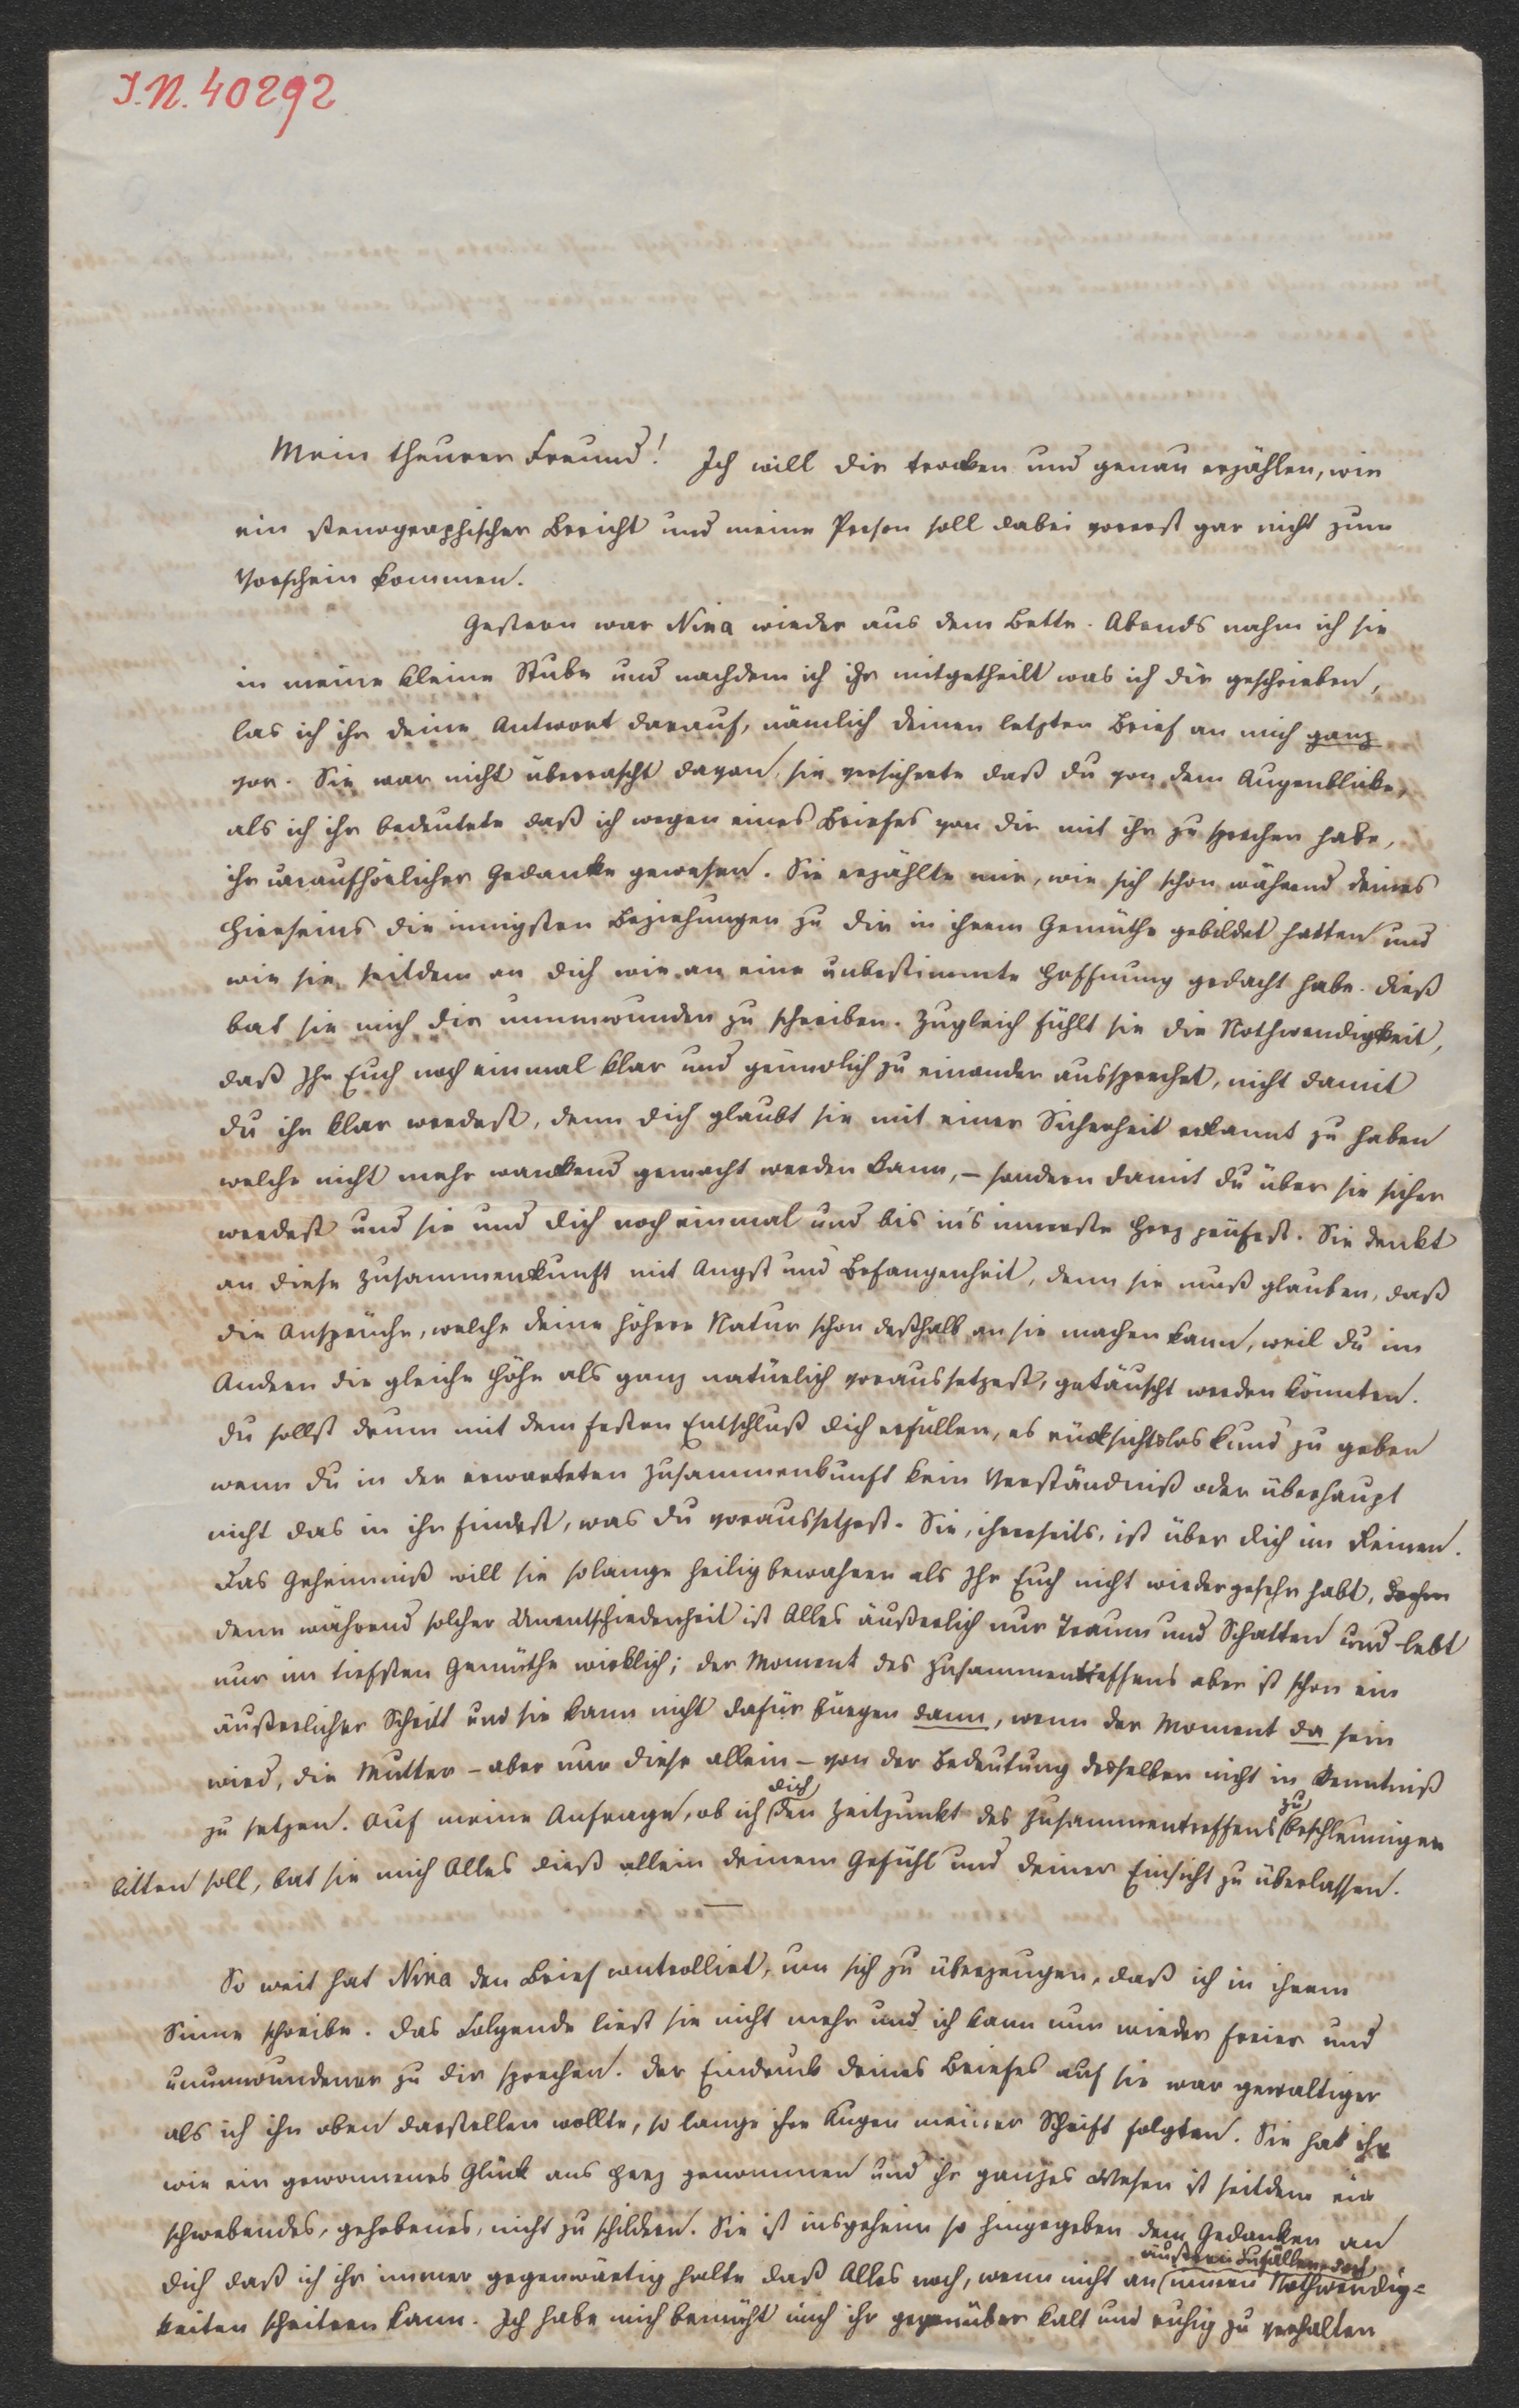 I.N. 40292
Mein theurer Freund! Ich will dir trocken und genau erzählen, wie
ein stenographischer Bericht und meine Person soll dabei vorerst gar nicht zum
Vorschein kommen.
Gestern war Nina wieder aus dem Bette. Abends nahm ich sie
in meine kleine Stube und nachdem ich ihr mitgetheilt was ich dir geschrieben,
las ich ihr deine Antwort darauf, nämlich deinen letzten Brief an mich ganz
vor. Sie war nicht überrascht davon, sie versicherte daß du von dem Augenblicke,
als ich ihr bedeutete daß ich wegen eines Briefes von dir mit ihr zu sprechen habe,
ihr unaufhörlicher Gedanke gewesen. Sie erzählte mir, wie sich schon während deines
Hierseins die innigsten Beziehungen zu dir in ihrem Gemüthe gebildet hatten und
wie sie seitdem an dich wie an eine unbestimmte Hoffnung gedacht habe. Dieß
bat sie mich dir unumwunden zu schreiben. Zugleich fühlt sie die Nothwendigkeit,
daß Ihr Euch noch einmal klar und gründlich zu einander aussprechet, nicht damit
du ihr klar werdest, denn dich glaubt sie mit einer Sicherheit erkannt zu haben
welche nicht mehr wankend gemacht werden kann, – sondern damit du über sie sicher
werdest und sie und dich noch einmal und bis in's innerste Herz prüfest. Sie denkt
an diese Zusammenkunft mit Angst und Befangenheit, denn sie muß glauben, daß
die Ansprüche, welche deine höhere Natur schon deßhalb an sie machen kann, weil du im
Andern die gleiche Höhe als ganz natürlich voraussetzest, getäuscht werden könnten.
Du sollst drum mit dem festen Entschluß dich erfüllen, es rücksichtslos kund zu geben
wenn du in der erwarteten Zusammenkunft kein Verständniß oder überhaupt
nicht das in ihr findest, was du voraussetzest. Sie, ihrerseits, ist über dich im Reinen.
Das Geheimniß will sie solange heilig bewahren als Ihr Euch nicht wiedergesehn habt,
denn während solcher Unentschiedenheit ist Alles äußerlich nur Traum und Schatten und lebt
nur im tiefsten Gemüthe wirklich; der Moment des Zusammentreffens aber ist schon ein
äußerlicher Schritt und sie kann nicht dafür bürgen dann, wenn der Moment da sein
wird, die Mutter – aber nur diese allein – von der Bedeutung desselben nicht in Kenntniß
zu setzen. Auf meine Anfrage, ob ich dich den Zeitpunkt des Zusammentreffens zu beschleunigen
bitten soll, bat sie mich Alles dieß allein deinem Gefühl und deiner Einsicht zu überlassen.
So weit hat Nina den Brief controllirt, um sich zu überzeugen, daß ich in ihrem
Sinne schreibe. Das Folgende liest sie nicht mehr und ich kann nun wieder freier und
unumwundener zu dir sprechen. Der Eindruck deines Briefes auf sie war gewaltiger
als ich ihn oben darstellen wollte, so lange ihre Augen meiner Schrift folgten. Sie hat ihn
wie ein gewonnenes Glück ans Herz genommen und ihr ganzes Wesen ist seitdem ein
schwebendes, gehobenes, nicht zu schildern. Sie ist insgeheim so hingegeben dem Gedanken an
dich daß ich ihr immer gegenwärtig halte daß Alles noch, wenn nicht an äußern Zufällen doch innern Nothwendig-
keiten scheitern kann. Ich habe mich bemüht mich ihr gegenüber kalt und ruhig zu verhalten